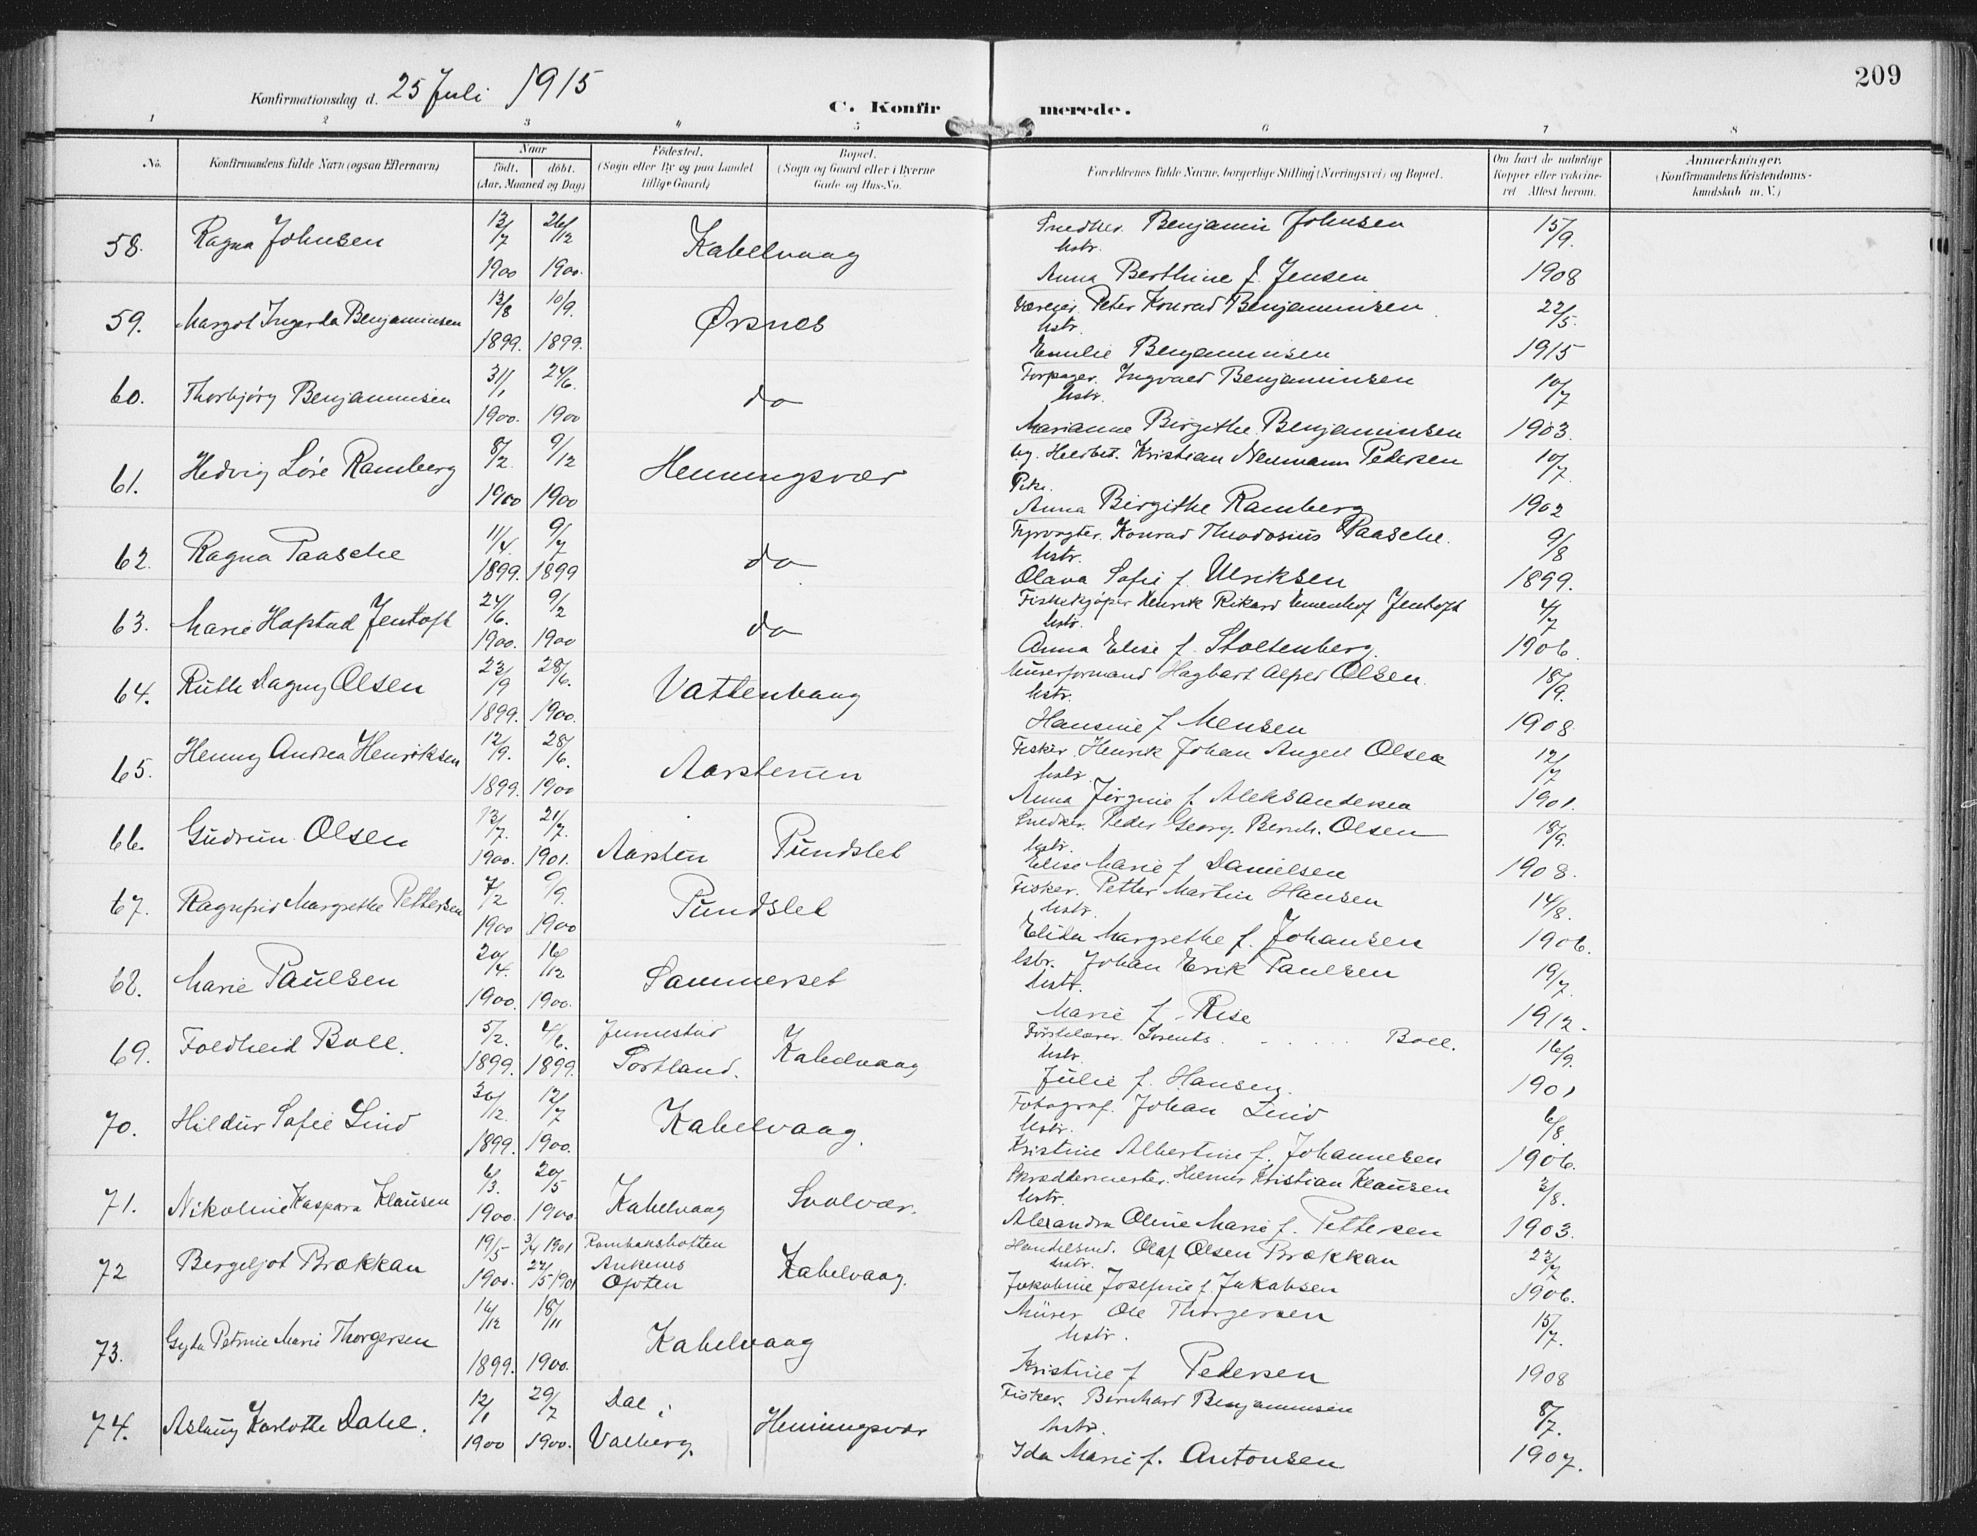 Konfirmationsdag d. 25 Juli 1915
C. Konfirmerede.
209
1 2 3 4 5 6 7 8
No. Konfirmandens fulde Navn (ogsaa Efternavn)
Naar
født. døbt.
(Aar, Maaned og Dag)
Fødested.
(Sogn eller By og paa Landet
tillige Gaard)
Bopæl.
(Sogn og Gaard eller i Byerne
Gade og Hus-No.
Forældrenes fulde Navne, borgerlige Stilling (Næringsvei) og Bopæl.
Om havt de naturlige
Kopper eller vakcine-
ret Attest herom.
Anmærkninger.
(Konfirmandens Kristendoms-
kundskab m. V.)
58. Ragna Johnsen 13/7 1900 26/12 1900. Kabelvaag
Snedker. Benjamin Johnsen
hstr.
Anna Berthine f. Jensen
15/9. 1908
59. Margot Ingerda Benjaminsen 13/8 1899. 10/9. 1899. Ørsnes
Peter Konrad Benjaminsen
hstr.
Emilie Benjaminsen
22/5. 1915
60. Thorbjørg Benjaminsen 31/1 1900. 24/6. 1900 do
Forpagter. Ingvald Benjaminsen
hstr.
Marianne Birgithe Benjaminsen
10/7 1903.
61. Hedvig Løre Ramberg 8/2. 1900 9/12 1900 Henningsvær
Kristian Neumann Pedersen
Pike.
Anna Birgithe Ramberg
10/7. 1902
62. Ragna Paasche 11/4. 1899. 9/7 1899 do
Fyrvogter. Konrad Theodosius Paasche.
hstr.
Olava Sofie f. Ulriksen
9/8 1899.
63. Marie Hafstad Jentoft 24/6. 1900. 9/2 1900 do
Fiskekjøper Henrik Rikard Jentoft
hstr.
Anna Elise f. Stoltenberg.
4/7 1906.
64. Ruth Dagny Olsen 23/9 1899. 28/6. 1900. Vatterbaug
Murerformand Hagbart Alfred Olsen.
hstr.
Hansine f. Mensen
18/9. 1908.
65. Henny Andrea Henriksen 12/9. 1899. 28/6. 1900 Aarsteinen
Fisker. Henrik Johan Angell Olsen
hstr.
Anna Jørgine f. Aleksandersen
12/7 1901.
66. Gudrun Olsen 13/7. 1900. 21/7. 1901. Aarsten Pundslet
Snedker. Peder Georg. Bernh. Olsen
hstr.
Elise Marie f. Danielsen
18/9. 1908.
67. Ragnfrid Margrethe Pettersen 7/2 1900 9/9. 1900 Pundslet
Fisker. Petter Martin Hansen
hstr.
Elida Margrethe f. Johansen
14/8. 1906.
68. Marie Paulsen 20/4. 1900. 16/12 1900. Sammerset
Johan Erik Paulsen
hstr.
Marie f. Rise
19/7. 1912.
69. Foldheid Boll. 5/2. 1899. 4/6. 1899. Jennestad Sortland. Kabelvaag
Førstelærer. Lorents . . . . . Boll.
hstr.
Julie f. Hansen.
16/9. 1901
70. Hildur Sofie Lind 30/12. 1899. 12/7 1900. Kabelvaag.
Fotograf. Johan Lind
hstr.
Kristine Albertine f. Johannesen
6/8. 1906.
71. Nikoline Kaspara Klausen 6/3. 1900. 20/5 1900 Kabelvaag Svolvær.
Skræddermester. Helmer Kristian Klausen
hstr.
Alexandra Oline Marie f. Pettersen
3/8. 1903.
72 Bergeljot Brækkan 19/5 1900. 3/4 1901 27/5 1901 Rombaksbotten Ankenes Ofoten Kabelvaag.
Handelsmd. Olaf Olsen Brækkan
hstr.
Jakobine Josefine f. Jakobsen
23/7 1906.
73. Gyda Petrine Marie Thorgersen 16/12 1899. 18/11 1900. Kabelvaag
Murer Ole Thorgersen
hstr.
Kristine f Pedersen
15/7. 1908
74. Aslaug Karlotte Dahl. 12/1 1900 29/7 1900. Dal; Valberg. Henningsvær
Fisker. Bernhard Benjaminsen
hstr.
Ida Marie f. Antonsen
8/7. 1907.